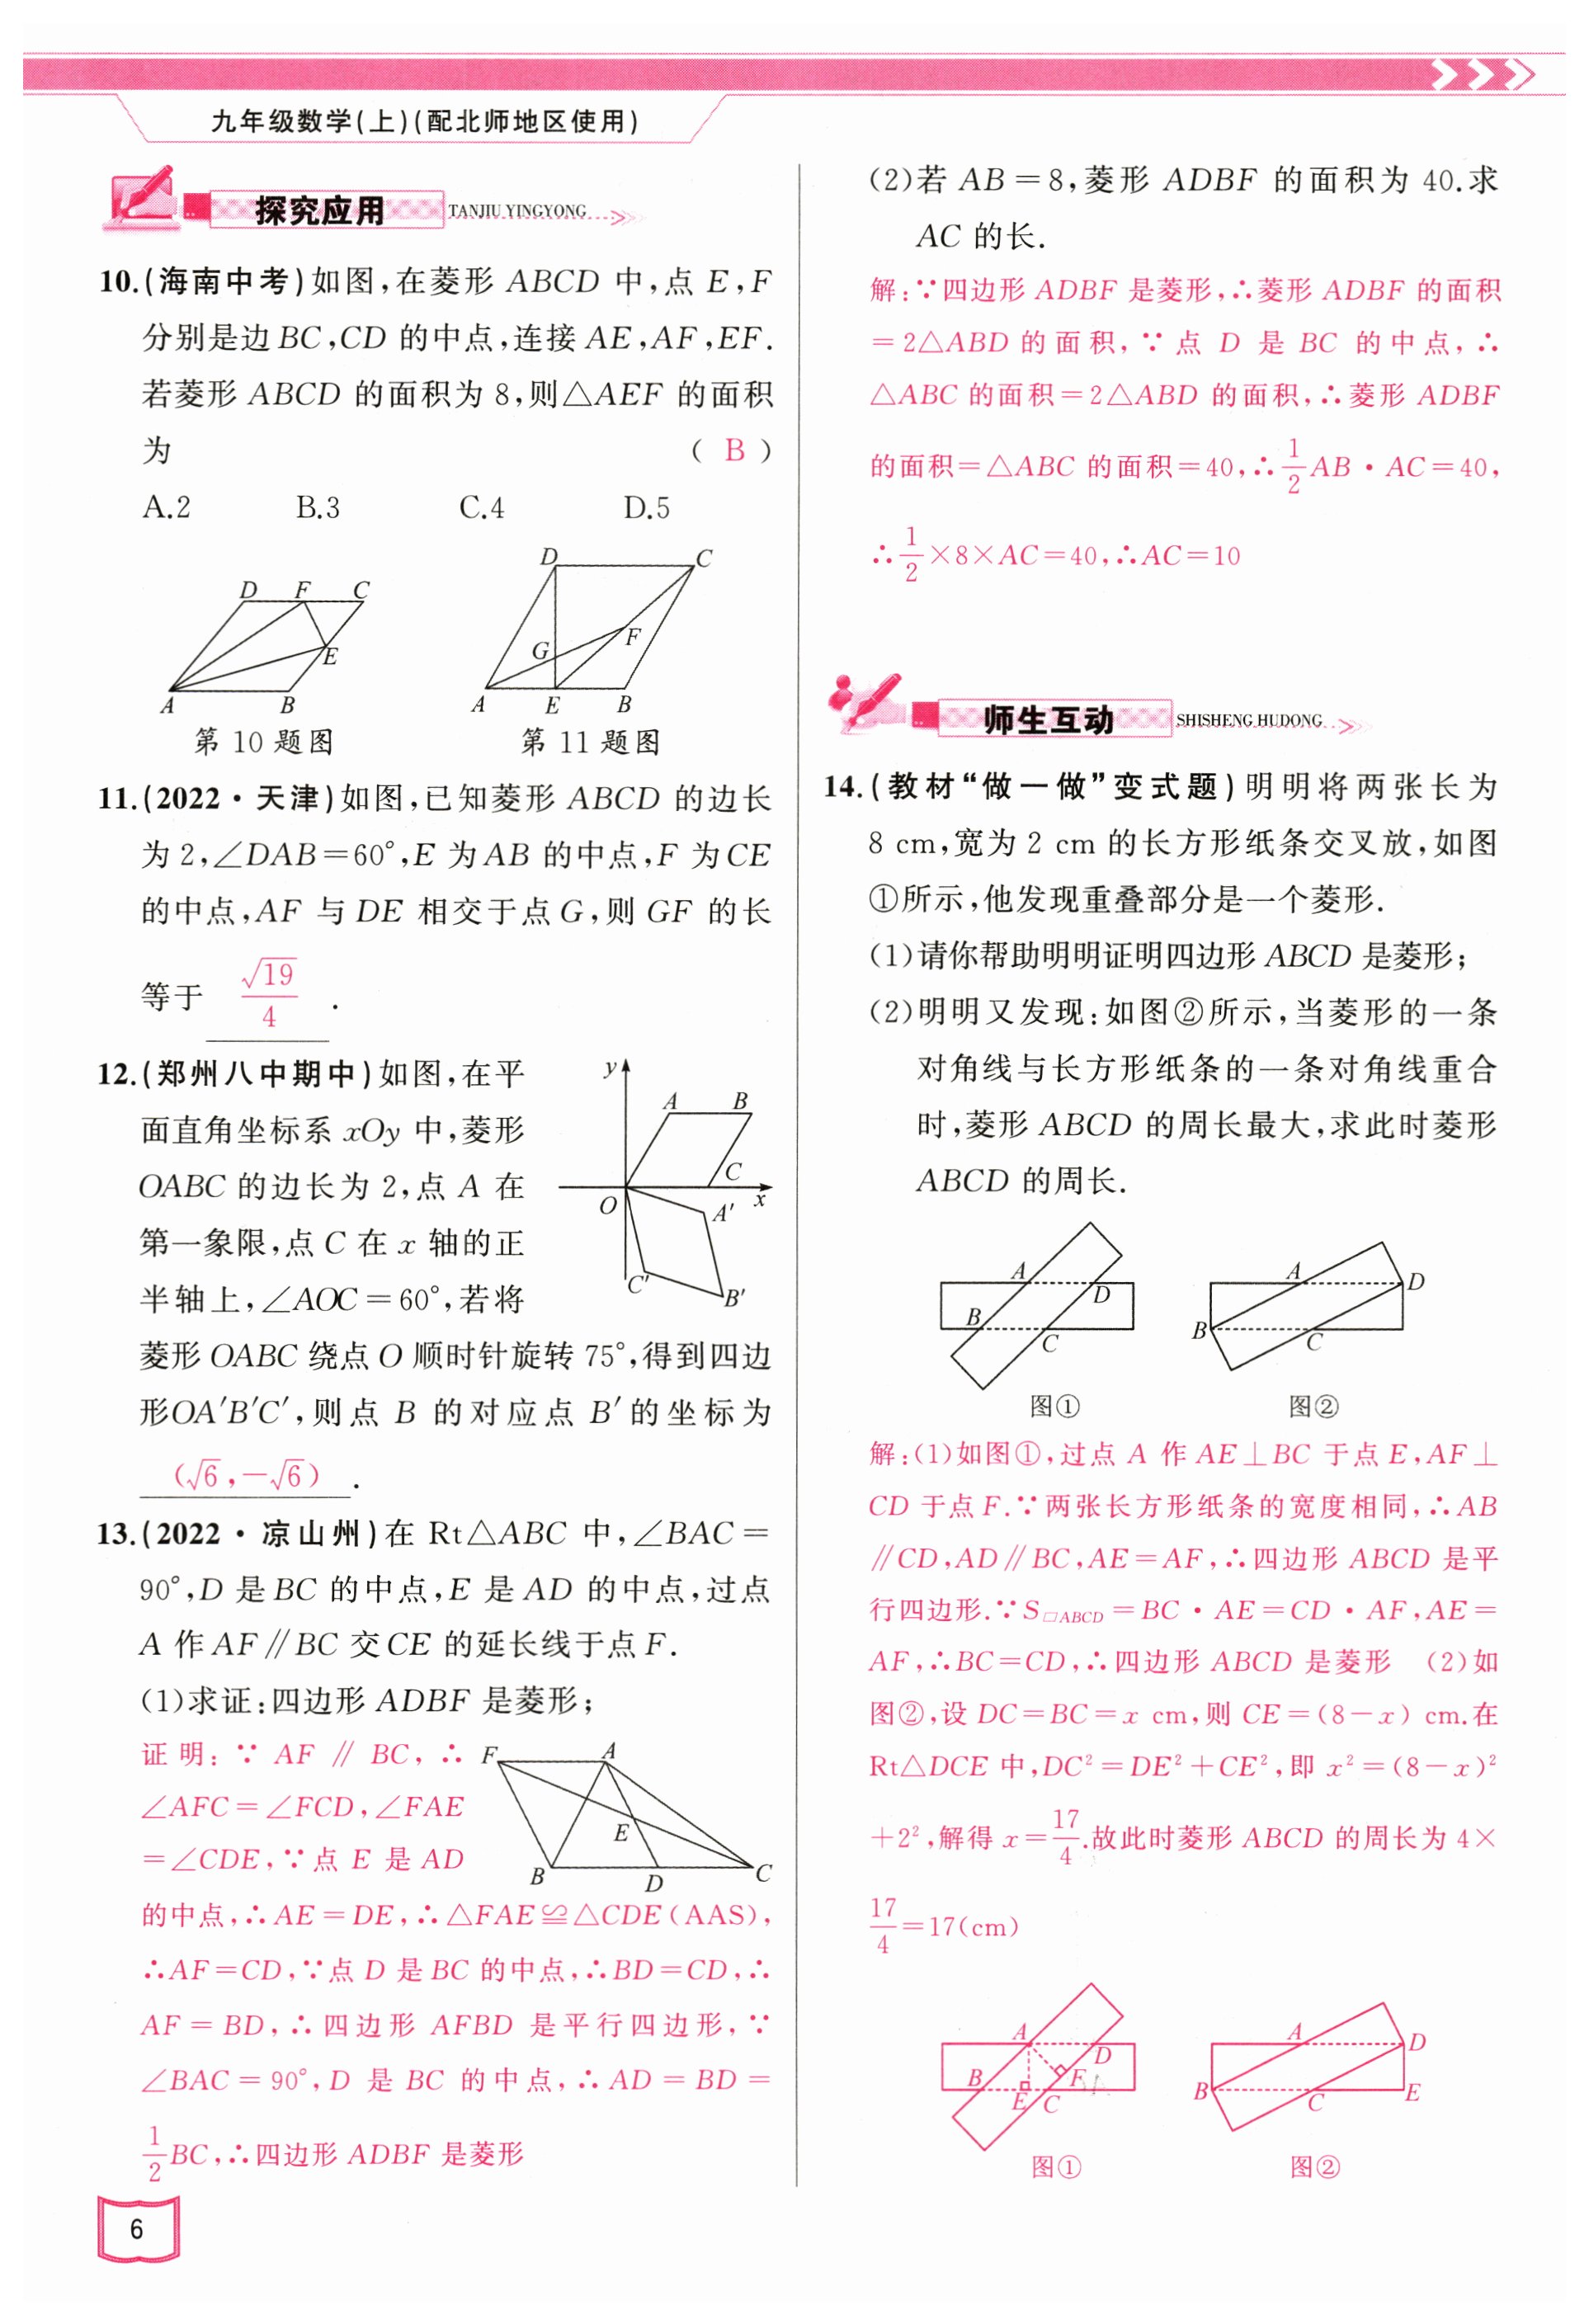 九年级数学(上)(配北师地区使用)
探究应用 TANJIU YINGYONG
10.(海南中考)如图,在菱形 ABCD 中,点 E,F
分别是边 BC,CD 的中点,连接 AE,AF,EF.
若菱形 ABCD 的面积为 8,则△AEF 的面积
为 ( B )
A.2 B.3 C.4 D.5
D F C E A B
D C F G A E B
第 10 题图 第 11 题图
11.(2022·天津)如图,已知菱形 ABCD 的边长
为 2,∠DAB=60°,E 为 AB 的中点,F 为 CE
的中点,AF 与 DE 相交于点 G,则 GF 的长
等于 √19/4 .
12.(郑州八中期中)如图,在平
面直角坐标系 xOy 中,菱形
OABC 的边长为 2,点 A 在
第一象限,点 C 在 x 轴的正
半轴上,∠AOC=60°,若将
y A B C O A′ x C′ B′
菱形 OABC 绕点 O 顺时针旋转 75°,得到四边
形OA′B′C′,则点 B 的对应点 B′的坐标为
(√6,-√6) .
13.(2022·凉山州)在 Rt△ABC 中,∠BAC=
90°,D 是 BC 的中点,E 是 AD 的中点,过点
A 作 AF∥BC 交 CE 的延长线于点 F.
(1)求证:四边形 ADBF 是菱形;
证明:∵ AF ∥ BC,∴
∠AFC=∠FCD,∠FAE
=∠CDE,∵点 E 是 AD
F A E B D C
的中点,∴AE=DE,∴△FAE≌△CDE(AAS),
∴AF=CD,∵点 D 是 BC 的中点,∴BD=CD,∴
AF=BD,∴四边形 AFBD 是平行四边形,∵
∠BAC=90°,D 是 BC 的中点,∴AD=BD=
1/2BC,∴四边形 ADBF 是菱形
6
(2)若 AB=8,菱形 ADBF 的面积为 40.求
AC 的长.
解:∵四边形 ADBF 是菱形,∴菱形 ADBF 的面积
=2△ABD 的面积,∵点 D 是 BC 的中点,∴
△ABC 的面积=2△ABD 的面积,∴菱形 ADBF
的面积=△ABC 的面积=40,∴1/2AB·AC=40,
∴1/2×8×AC=40,∴AC=10
师生互动 SHISHENG HUDONG
14.(教材“做一做”变式题)明明将两张长为
8 cm,宽为 2 cm 的长方形纸条交叉放,如图
①所示,他发现重叠部分是一个菱形.
(1)请你帮助明明证明四边形 ABCD 是菱形;
(2)明明又发现:如图②所示,当菱形的一条
对角线与长方形纸条的一条对角线重合
时,菱形 ABCD 的周长最大,求此时菱形
ABCD 的周长.
A D B C
A D B C
图① 图②
解:(1)如图①,过点 A 作 AE⊥BC 于点 E,AF⊥
CD 于点 F.∵两张长方形纸条的宽度相同,∴AB
∥CD,AD∥BC,AE=AF,∴四边形 ABCD 是平
行四边形.∵S▱ABCD=BC·AE=CD·AF,AE=
AF,∴BC=CD,∴四边形 ABCD 是菱形 (2)如
图②,设 DC=BC=x cm,则 CE=(8-x) cm.在
Rt△DCE 中,DC²=DE²+CE²,即 x²=(8-x)²
+2²,解得 x=17/4.故此时菱形 ABCD 的周长为 4×
17/4=17(cm)
A D B F E C
A D B C E
图① 图②